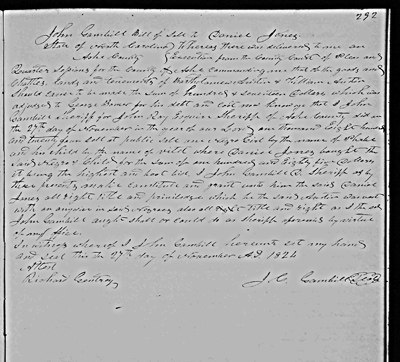 292
John Camhill Bill of Sale to Daniel Jones
State of North Carolina Whereas there was delivered to me an
Ashe County Execution from the County Court of Pleas and
Quarter Sessions for the County of Ashe commanding me that of the goods and
Chattles, lands and tenements of Bartholomew and William
Should cause to be made the sum of hundred & Dollars which was
adjudged to George Bower for his debt and cost now know ye that I John
Camhill Sheriff for John Ray Esquire Sheriff of Ashe County did on
the 27th day of November in the year of our Lord one thousand eight hundred
and twenty four sell at public sale one Negro Girl by the name of
and his child in the name of where Daniel Jones bought the
said Negro & Child for the sum of one hundred and Eighty five Dollars
it being the highest and last bid, I John Camhill D. Sheriff do by
these presents make constitute and grant unto him the said Daniel
Jones all right title and priviledge which he the said cannot
with an in said Negroes also all title and right as I the said
John Camhill ought shall or could do as Sheriff aforesaid by virtue
of my office.
In witness whereof I John Camhill hereunto set my hand
and Seal this the 27th day of November AD 1824
Attest
Richard Gentry J. C. Camhill Seal